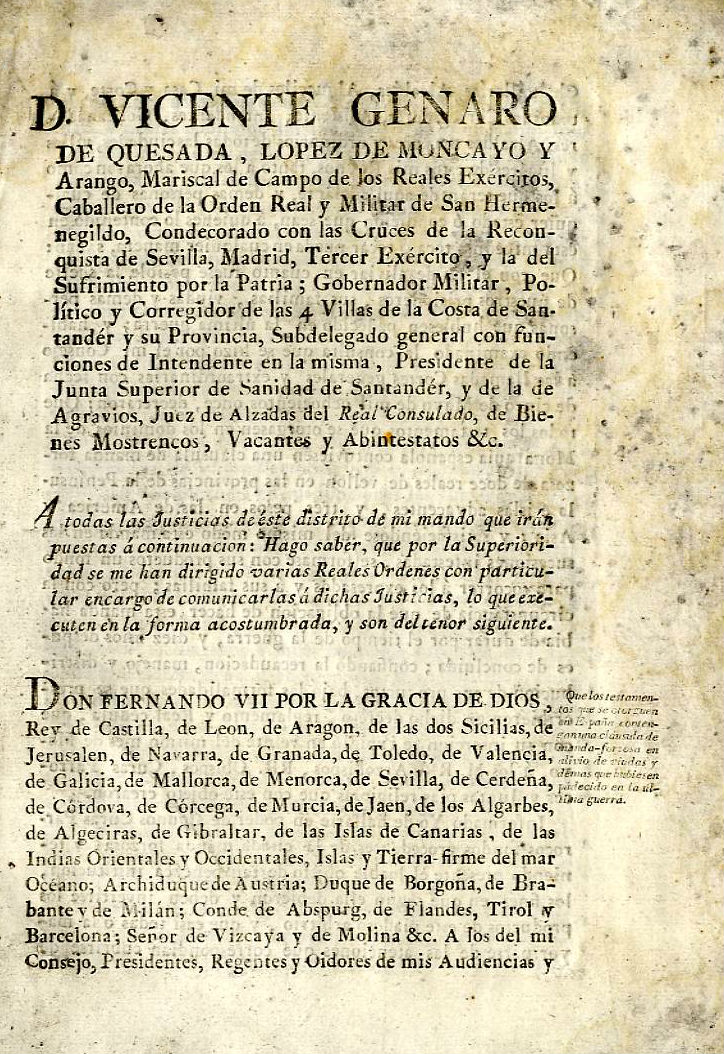 D. VICENTE GENARO
DE QUESADA, LOPEZ DE MONCAYO Y
Arango, Mariscal de Campo de los Reales Exércitos,
Caballero de la Orden Real y Militar de San Herme-
negildo, Condecorado con las Cruces de la Recon-
quista de Sevilla, Madrid, Tercer Exército, y la del
Sufrimiento por la Patria; Gobernador Militar, Po-
lítico y Corregidor de las 4 Villas de la Costa de San-
tandér y su Provincia, Subdelegado general con fun-
ciones de Intendente en la misma, Presidente de la
Junta Superior de Sanidad de Santandér, y de la de
Agravios, Juez de Alzadas del Real Consulado, de Bie-
nes Mostrencos, Vacantes y Abintestatos &c.
A todas las Justicias de éste distrito de mi mando que irán
puestas á continuacion: Hago saber, que por la Superiori-
dad se me han dirigido varias Reales Ordenes con particu-
lar encargo de comunicarlas á dichas Justicias, lo que exe-
cuten en la forma acostumbrada, y son del tenor siguiente.
DON FERNANDO VII POR LA GRACIA DE DIOS,
Rey de Castilla, de Leon, de Aragon, de las dos Sicilias, de
Jerusalen, de Navarra, de Granada, de Toledo, de Valencia,
de Galicia, de Mallorca, de Menorca, de Sevilla, de Cerdeña,
de Córdova, de Córcega, de Murcia, de Jaen, de los Algarbes,
de Algeciras, de Gibraltar, de las Islas de Canarias, de las
Indias Orientales y Occidentales, Islas y Tierra-firme del mar
Océano; Archiduque de Austria; Duque de Borgoña, de Bra-
bante y de Milán; Conde de Abspurg, de Flandes, Tirol y
Barcelona; Señor de Vizcaya y de Molina &c. A los del mi
Consejo, Presidentes, Regentes y Oidores de mis Audiencias y
Que los testamen-
tos que se otorguen
en España conten-
gan una cláusula de
manda-forzosa en
alivio de viudas y
demas que hubiesen
padecido en la úl-
tima guerra.